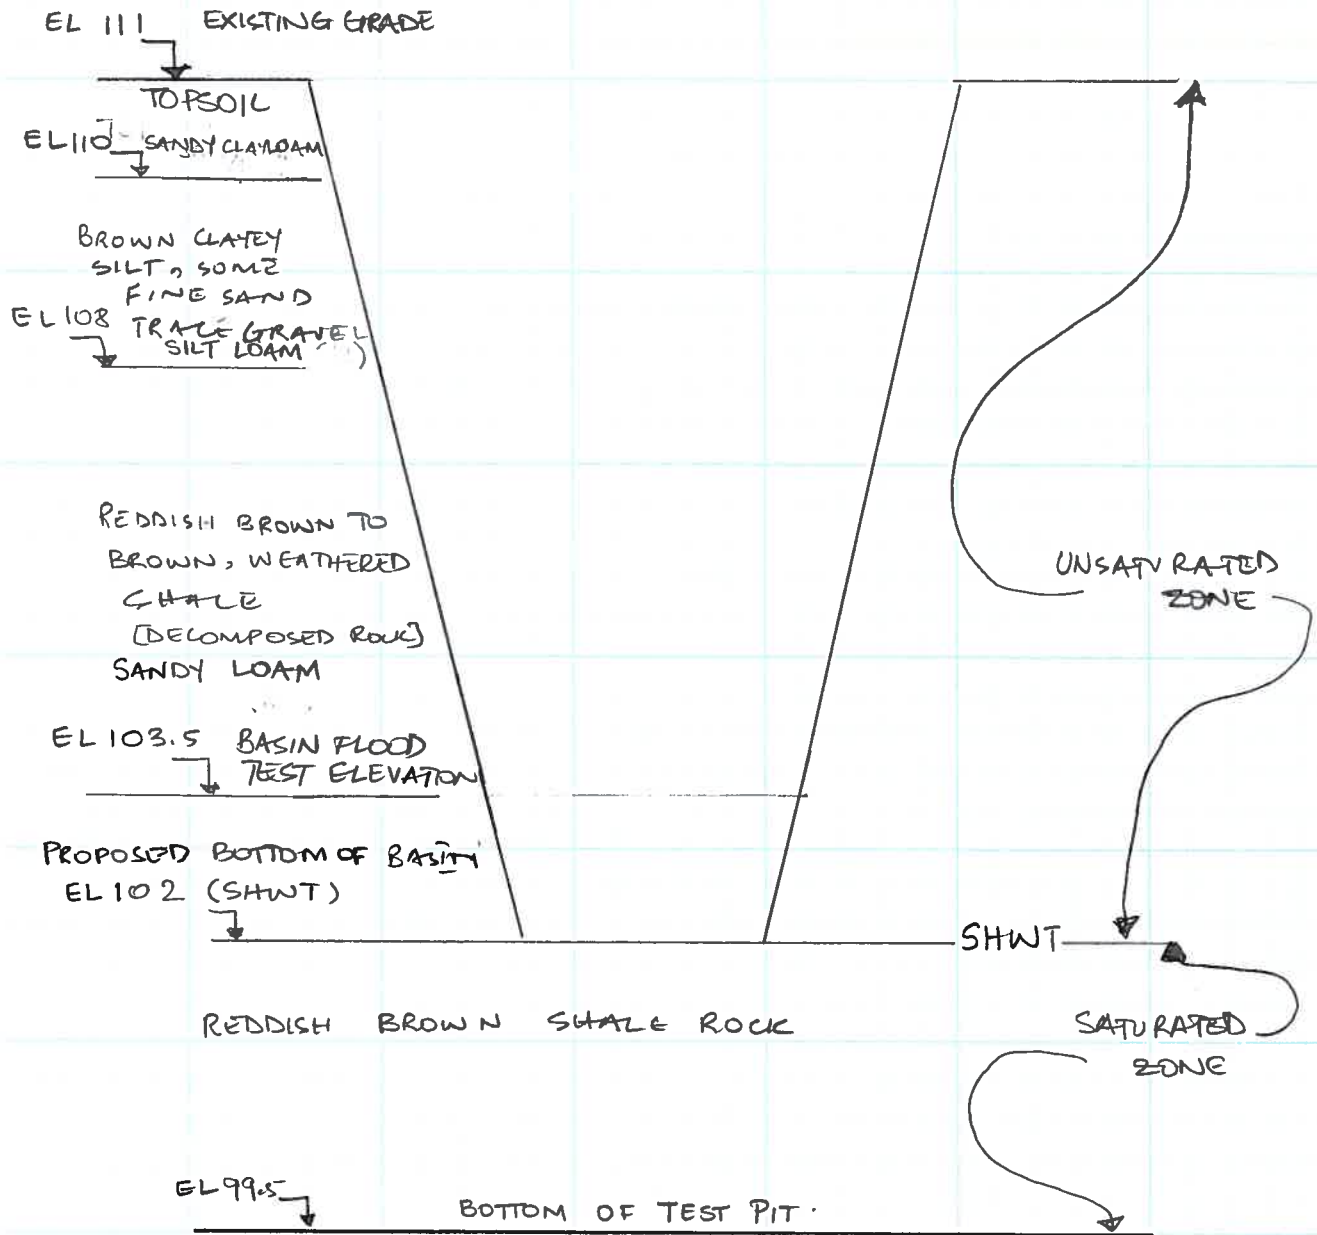 EL 111 EXISTING GRADE
TOPSOIL
EL110 SANDY CLAYLOAM
BROWN CLAYEY
SILT, SOME
FINE SAND
EL 108 TRACE GRAVEL
SILT LOAM
REDDISH BROWN TO
BROWN, WEATHERED
SHALE
[DECOMPOSED ROCK]
SANDY LOAM
UNSATURATED
ZONE
EL 103.5 BASIN FLOOD
TEST ELEVATION
PROPOSED BOTTOM OF BASIN
EL 102 (SHWT)
SHWT
REDDISH BROWN SHALE ROCK
SATURATED
ZONE
EL 99.5
BOTTOM OF TEST PIT.